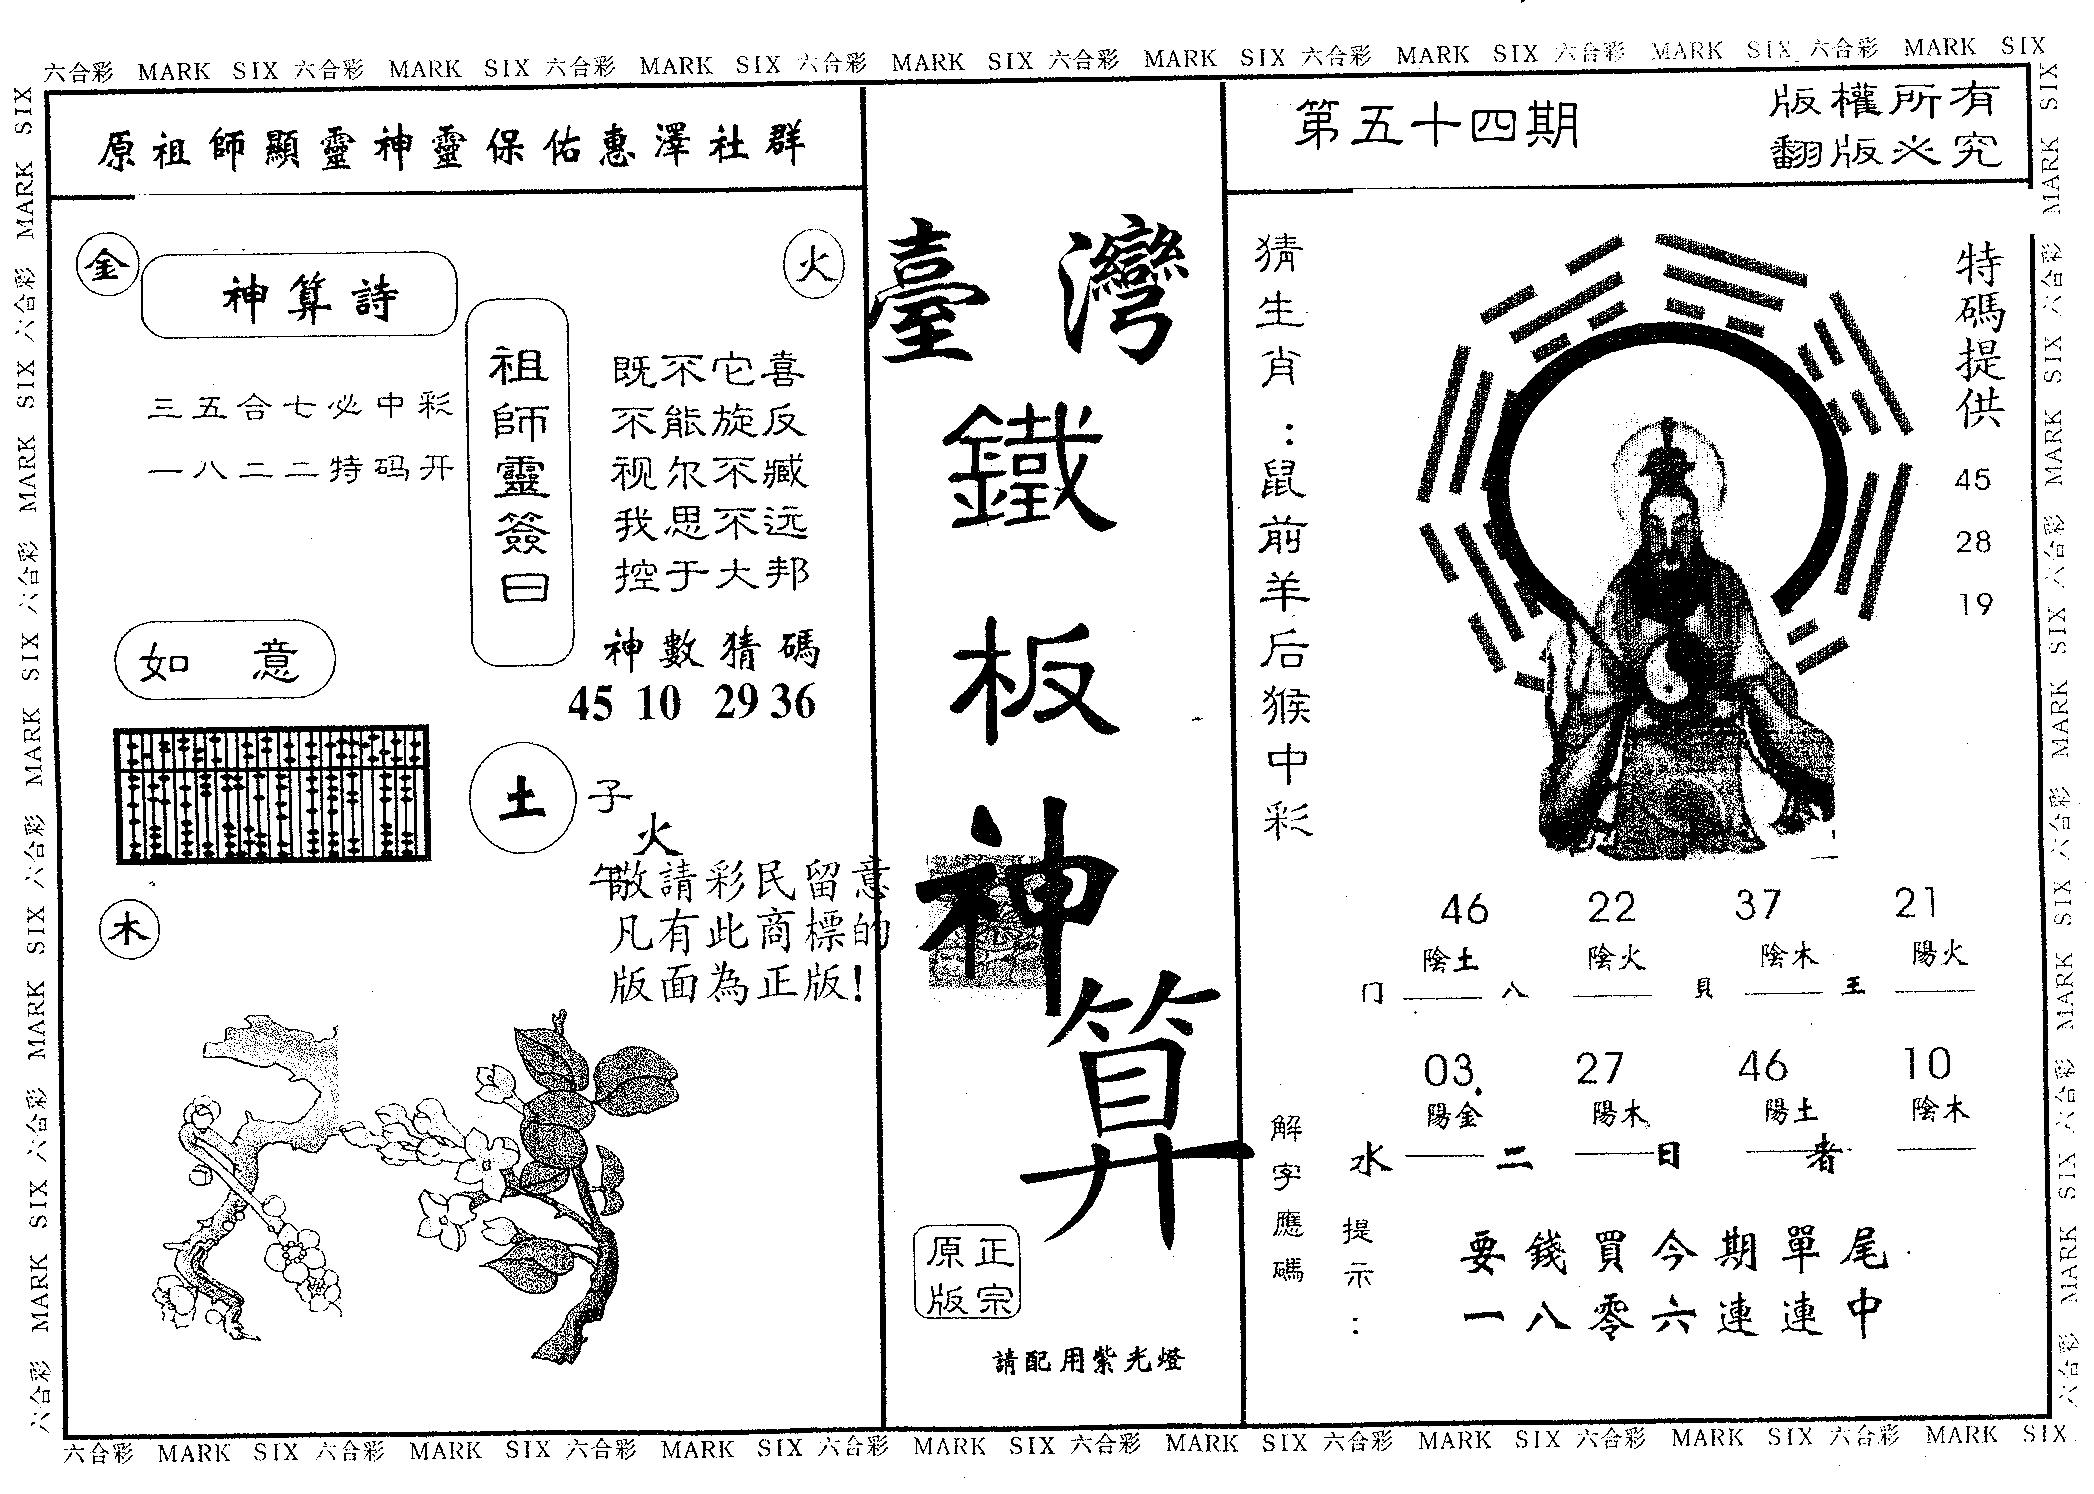 六合彩 MARK SIX 六合彩 MARK SIX 六合彩 MARK SIX 六合彩 MARK SIX 六合彩 MARK SIX 六合彩 MARK SIX 六合彩 MARK SIX 六合彩 MARK SIX
六合彩 MARK SIX 六合彩 MARK SIX 六合彩 MARK SIX 六合彩 MARK SIX 六合彩 MARK SIX
原祖師顯靈神靈保佑惠澤社群
金
神算詩
火
三五合七必中彩
一八二二特码开
祖師靈簽曰
既不它喜
不能旋反
视尔不臧
我思不远
控于大邦
神數猜碼
45 10 29 36
如意
土
子
火
午
木
敬請彩民留意
凡有此商標的
版面為正版!
臺灣
鐵
板
神
算
原正
版宗
請配用紫光燈
第五十四期
版權所有
翻版必究
猜生肖:鼠前羊后猴中彩
特碼提供
45
28
19
46 22 37 21
陰土 陰火 陰木 陽火
门 八 貝 王
03 27 46 10
陽金 陽木 陽土 陰木
水 二 日 者
解字應碼
提示:
要錢買今期單尾
一八零六連連中
六合彩 MARK SIX 六合彩 MARK SIX 六合彩 MARK SIX 六合彩 MARK SIX 六合彩 MARK SIX
六合彩 MARK SIX 六合彩 MARK SIX 六合彩 MARK SIX 六合彩 MARK SIX 六合彩 MARK SIX 六合彩 MARK SIX 六合彩 MARK SIX 六合彩 MARK SIX